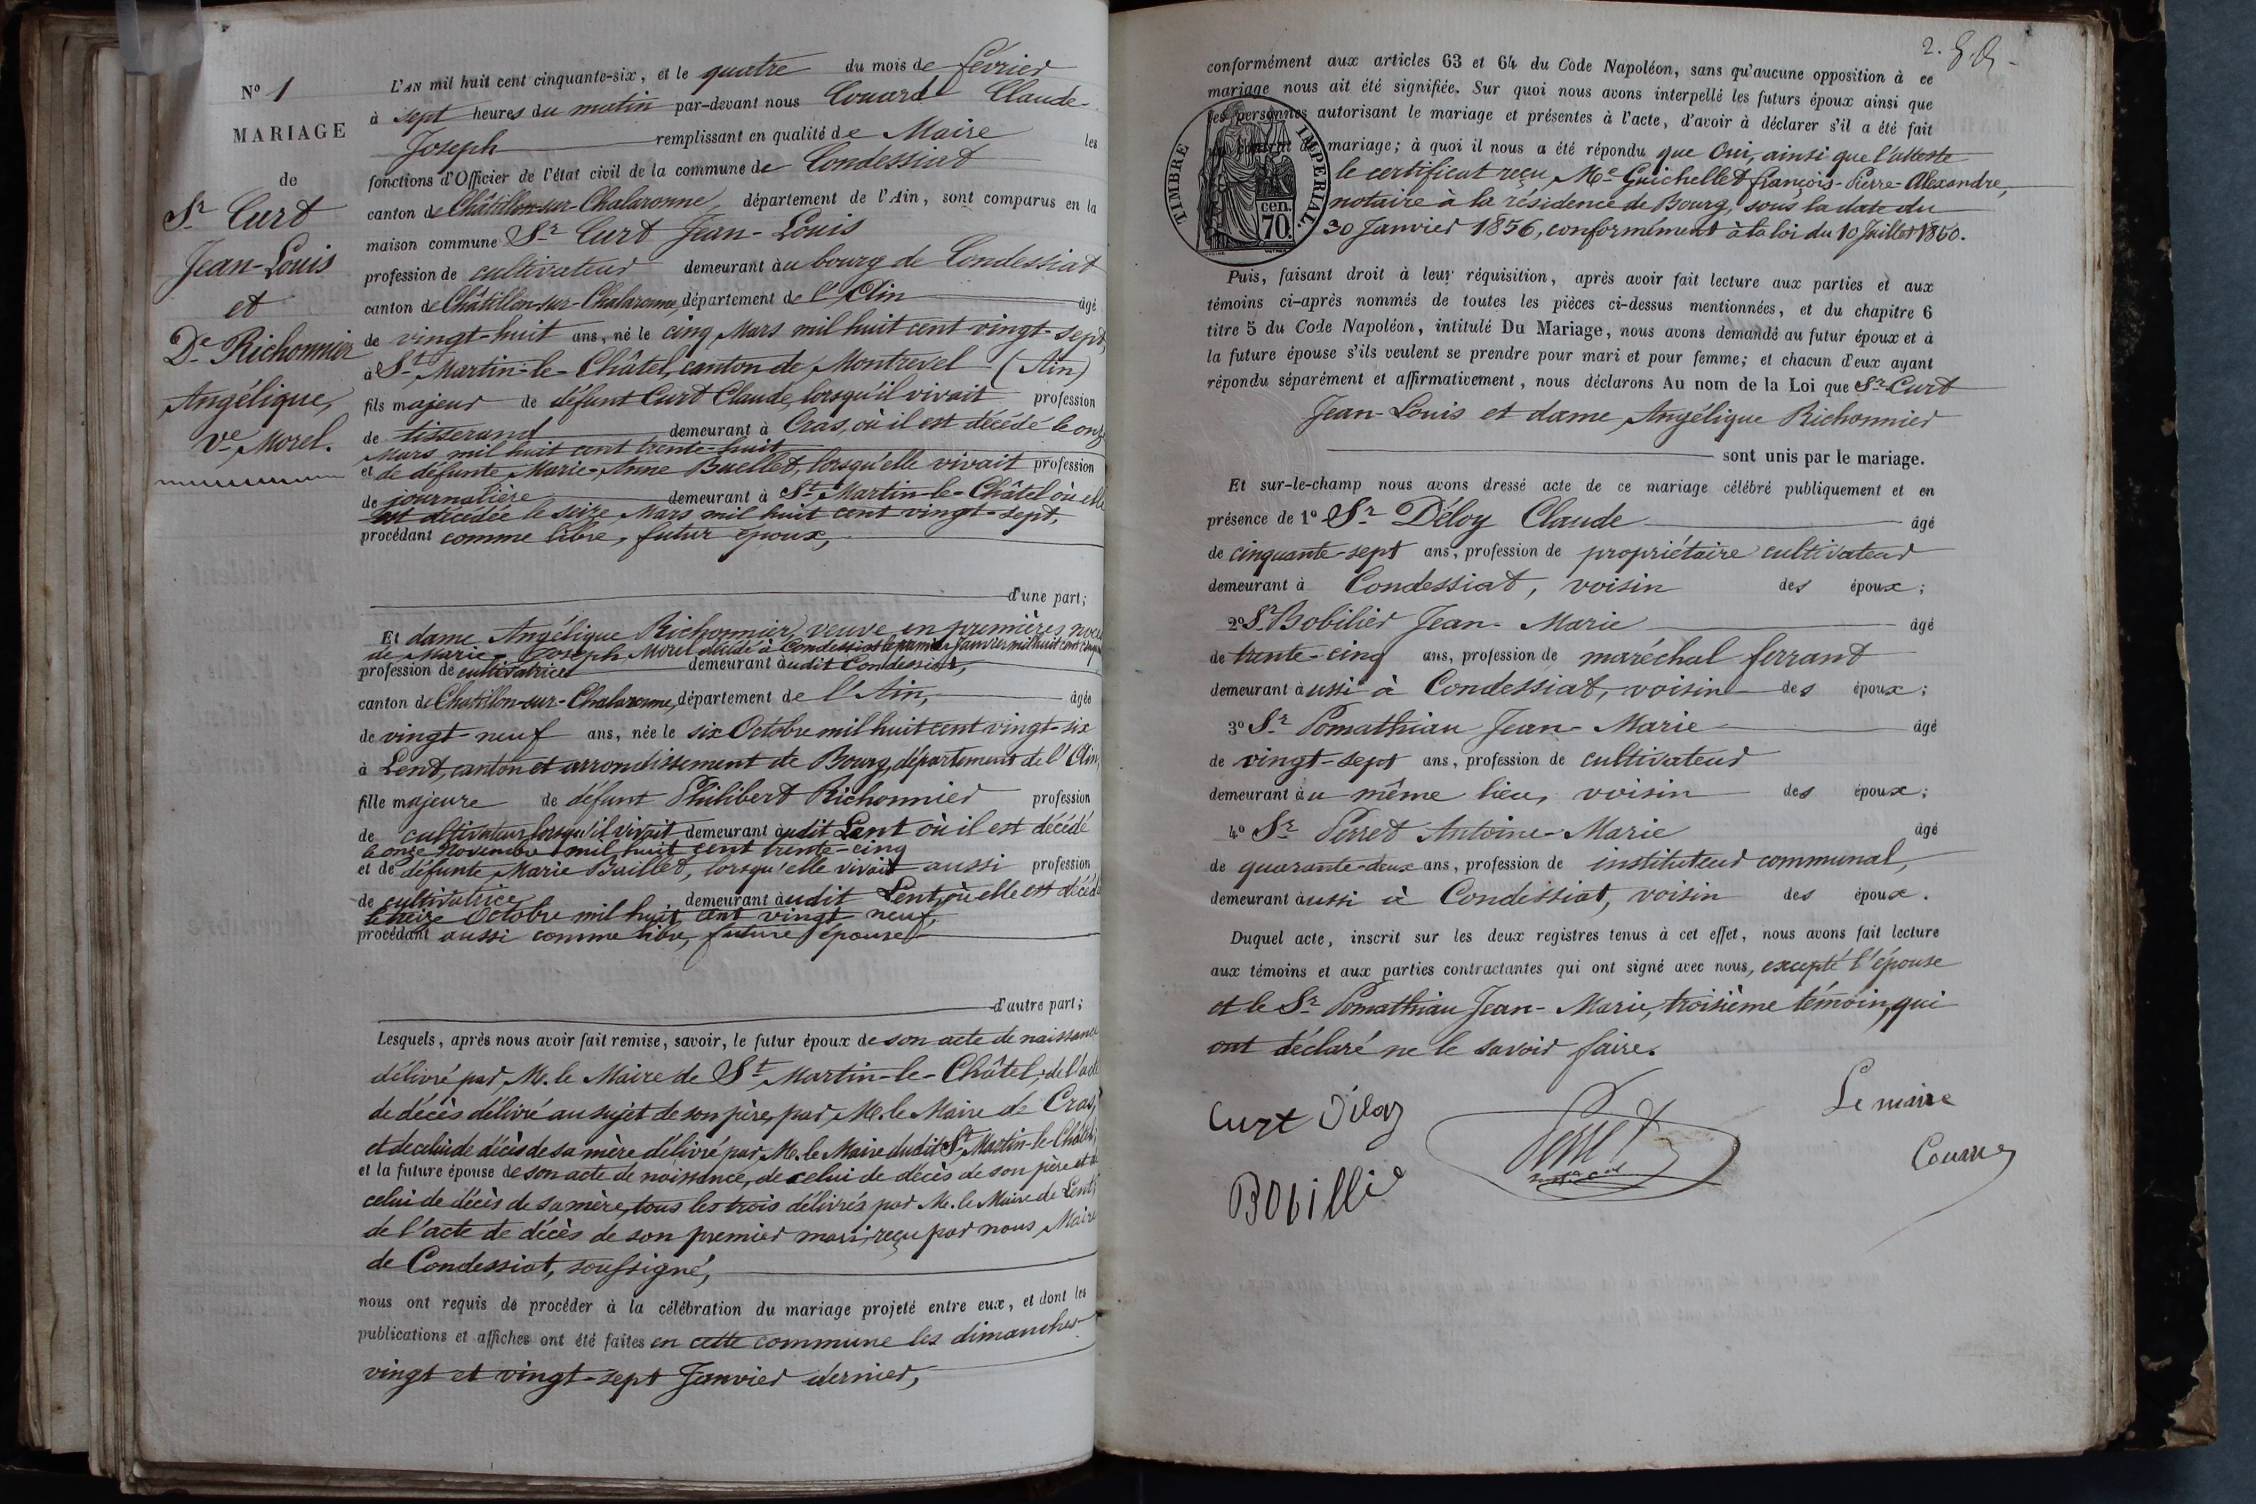 N° 1
MARIAGE
de
Sr Curt
Jean-Louis
et
De Richonnier
Angélique,
Ve Morel.
L'AN mil huit cent cinquante-six, et le quatre du mois de février
à sept heures du matin par-devant nous Couard Claude-
Joseph remplissant en qualité de Maire les
fonctions d'Officier de l'état civil de la commune de Condessiat
canton de Châtillon-sur-Chalaronne, département de l'Ain, sont comparus en la
maison commune Sr Curt Jean-Louis
profession de cultivateur demeurant au bourg de Condessiat
canton de Châtillon-sur-Chalaronne, département de l'Ain âgé
de vingt-huit ans, né le cinq Mars mil huit cent vingt-sept,
à St Martin-le-Châtel, canton de Montrevel (Ain)
fils majeur de défunt Curt Claude, lorsqu'il vivait profession
de tisserand demeurant à Cras, où il est décédé le onze
Mars mil huit cent trente-huit
et de défunte Marie-Anne Buellet, lorsqu'elle vivait profession
de journalière demeurant à St Martin-le-Châtel où elle
est décédée le seize Mars mil huit cent vingt-sept,
procédant comme libre, futur époux,
d'une part;
Et dame Angélique Richonnier, veuve en premières noces
de Marie-Joseph Morel décédé à Condessiat le premier Janvier mil huit cent
profession de cultivatrice demeurant audit Condessiat,
canton de Chatillon-sur-Chalaronne, département de l'Ain, âgée
de vingt-neuf ans, née le six Octobre mil huit cent vingt-six
à Lent, canton et arrondissement de Bourg, département de l'Ain,
fille majeure de défunt Philibert Richonnier profession
de cultivateur lorsqu'il vivait demeurant audit Lent où il est décédé
le onze Novembre mil huit cent trente-cinq
et de défunte Marie Buillet, lorsqu'elle vivait aussi profession
de cultivatrice demeurant audit Lent, où elle est décédée
le treize Octobre mil huit cent vingt-neuf,
procédant aussi comme libre, future épouse
d'autre part;
Lesquels, après nous avoir fait remise, savoir, le futur époux de son acte de naissance
délivré par M. le Maire de St Martin-le-Châtel, de l'acte
de décès délivré au sujet de son père, par M. le Maire de Cras,
et de celui de décès de sa mère délivré par M. le Maire dudit St Martin-le-Châtel;
et la future épouse de son acte de naissance, de celui de décès de son père et de
celui de décès de sa mère, tous les trois délivrés par M. le Maire de Lent;
de l'acte de décès de son premier mari, reçu par nous Maire
de Condessiat, soussigné,
nous ont requis de procéder à la célébration du mariage projeté entre eux, et dont les
publications et affiches ont été faites en cette commune les dimanches
vingt et vingt-sept Janvier dernier,
2.
conformément aux articles 63 et 64 du Code Napoléon, sans qu'aucune opposition à ce
mariage nous ait été signifiée. Sur quoi nous avons interpellé les futurs époux ainsi que
les personnes autorisant le mariage et présentes à l'acte, d'avoir à déclarer s'il a été fait
un contrat de mariage; à quoi il nous a été répondu que Oui, ainsi que l'atteste
le certificat reçu, Me Guichellet françois-Pierre-Alexandre,
notaire à la résidence de Bourg, sous la date du
30 Janvier 1856, conformément à la loi du 10 Juillet 1850.
TIMBRE IMPERIAL.
70. cen.
Puis, faisant droit à leur réquisition, après avoir fait lecture aux parties et aux
témoins ci-après nommés de toutes les pièces ci-dessus mentionnées, et du chapitre 6
titre 5 du Code Napoléon, intitulé Du Mariage, nous avons demandé au futur époux et à
la future épouse s'ils veulent se prendre pour mari et pour femme; et chacun d'eux ayant
répondu séparément et affirmativement, nous déclarons Au nom de la Loi que Sr Curt
Jean-Louis et dame Angélique Richonnier
sont unis par le mariage.
Et sur-le-champ nous avons dressé acte de ce mariage célébré publiquement et en
présence de 1° Sr Déloy Claude âgé
de cinquante-sept ans, profession de propriétaire cultivateur
demeurant à Condessiat, voisin des époux;
2° Sr Bobilier Jean-Marie âgé
de trente-cinq ans, profession de maréchal ferrant
demeurant aussi à Condessiat, voisin des époux;
3° Sr Pomathiau Jean-Marie âgé
de vingt-sept ans, profession de cultivateur
demeurant au même lieu, voisin des époux;
4° Sr Perret Antoine-Marie âgé
de quarante-deux ans, profession de instituteur communal,
demeurant aussi à Condessiat, voisin des époux.
Duquel acte, inscrit sur les deux registres tenus à cet effet, nous avons fait lecture
aux témoins et aux parties contractantes qui ont signé avec nous, excepté l'épouse
et le Sr Pomathiau Jean-Marie, troisième témoin, qui
ont déclaré ne le savoir faire.
Curt Déloy
Perret
Le maire
Couard
Bobillié